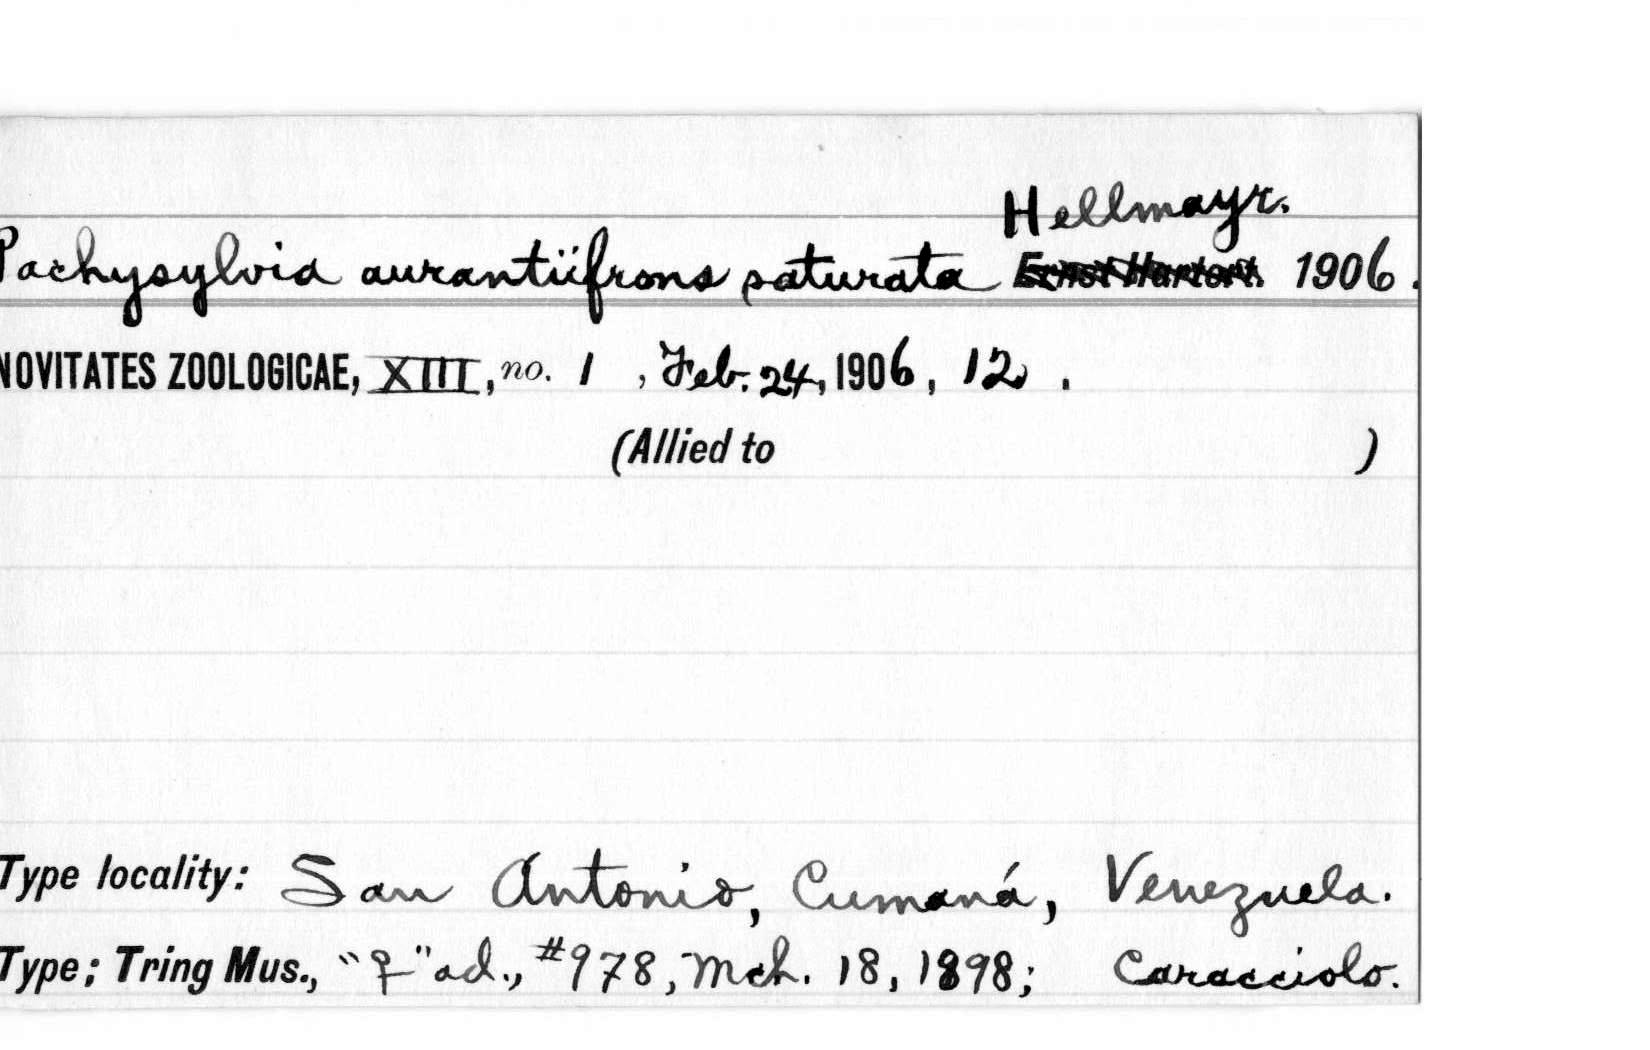 Hellmayr.
Pachysylvia aurantiifrons saturata Ernst Hartert. 1906.
NOVITATES ZOOLOGICAE, XIII, no. 1 , Feb. 24, 1906, 12 .
(Allied to )
Type locality: San Antonio, Cumaná, Venezuela.
Type; Tring Mus., "♀" ad., #978, Mch. 18, 1898; Caracciolo.